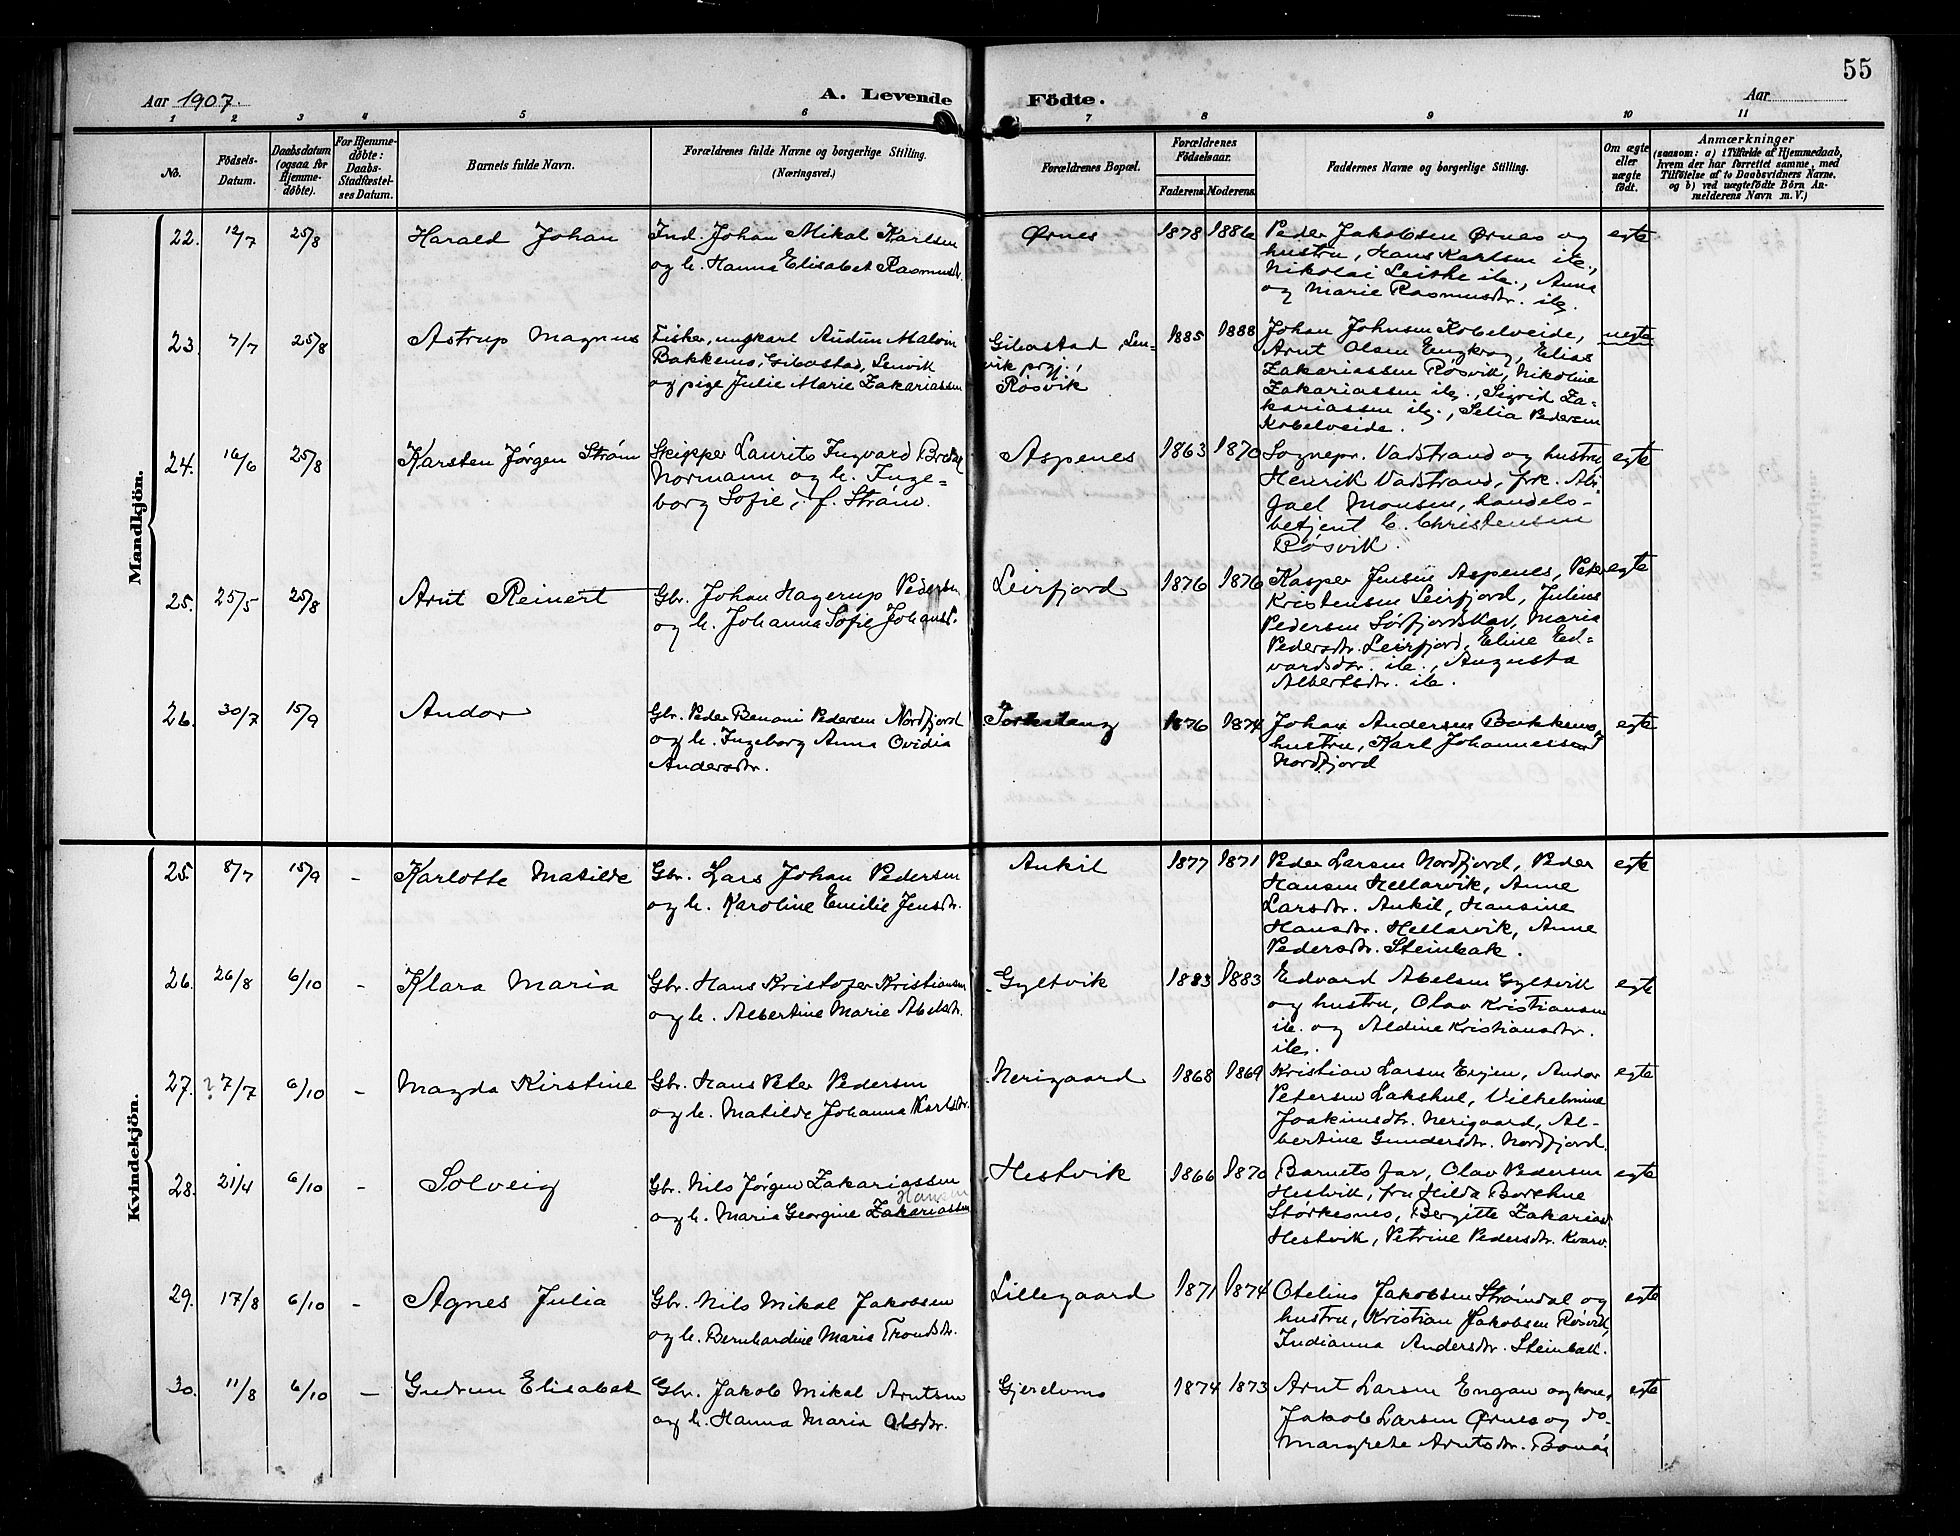 55
Aar 1907.
A. Levende Födte.
Aar
1 2 3 4 5 6 7 8 9 10 11
No.
Födsels-Datum.
Daabsdatum (ogsaa for Hjemmedöbte).
For Hjemmedöbte: Daabs-Stadfæstelses Datum.
Barnets fulde Navn.
Forældrenes fulde Navne og borgerlige Stilling.
(Næringsvei.)
Forældrenes Bopæl.
Forældrenes Födselsaar.
Faderens. Moderens.
Faddernes Navne og borgerlige Stilling.
Om ægte eller uægte födt.
Anmærkninger
(saasom: a) i Tilfælde af Hjemmedaab,
hvem der har forrettet samme, med
Tilföielse af to Daabsvidners Navne,
og b) ved uægtefödte Börn An-
melderens Navn m. V.)
Mandkjön.
22. 12/7 25/8 Harald Johan
Ind. Johan Mikal Karlsen
og h. Hanna Elisabet Rasmusdr.
Ørnes 1878 1886
Peder Jakobsen Ørnes og
hustru, Hans Karlsen ile.,
Nikolai Leithe ile., Anna
og Marie Rasmusdr. ile.
egte
23. 7/7 25/8 Astrup Magnus
Fisker, ungkarl Audun Malvin
Bakkemo, Gibostad, Lenvik
og pige Julie Marie Zakariassen
Gibostad, Len-
vik prgj.,
Røsvik
1885 1888
Johan Johnsen Kobelveide,
Arnt Olsen Engkrog, Elias
Zakariassen Røsvik, Nikoline
Zakariassen ile., Sigrid Za-
kariassen ile., Selia Pedersen
Kobelveide.
uegte
24. 16/6 25/8 Karsten Jørgen Strøm
Skipper Laurits Ingvard Bredal
Normann og h. Inge-
borg Sofie, f. Strøm.
Aspenes 1863 1870
Sognepr. Vadstrand og hustru,
Henrik Vadstrand, frk. Abi-
gael Monsen, handels-
betjent C. Christensen
Røsvik.
egte
25. 25/5 25/8 Arnt Reinert
Gbr. Johan Hagerup Pedersen
og h. Johanna Sofie Johansd.
Leirfjord 1876 1876
Kasper Jensen Aspenes, Peter
Kristensen Leirfjord, Julius
Pedersen Sørfjordskav, Maria
Pedersdr. Leirfjord, Eline Ed-
vardsdr. ile., Augusta
Albertsdr. ile.
egte
26. 30/7 15/9 Andor
Gbr. Peder Benoni Pedersen Nordfjord
og h. Ingeborg Anna Ovidia
Andersdr.
1876 1874
Johan Andersen Bakkemo og
hustru, Karl Johannessen
Nordfjord
egte
Kvindekjön.
25. 8/7 15/9 - Karlotte Matilde
Gbr. Lars Johan Pedersen
og h. Karoline Emilie Jensdr.
Ankil 1877 1871
Peder Larsen Nordfjord, Peder
Hansen Hellarvik, Anne
Larsdr. Ankil, Hansine
Hansdr. Hellarvik, Anne
Pedersdr. Steinbak.
egte
26. 26/8 6/10 - Klara Maria
Gbr. Hans Kristofer Kristiansen
og h. Albertine Marie Abelsdr.
Gyltvik 1883 1883
Edvard Abelsen Gyltvik
og hustru, Olav Kristiansen
ile. og Aldine Kristiansdr.
ile.
egte
27. ? 7/7 6/10 - Magda Kirstine
Gbr. Hans Peter Pedersen
og h. Matilde Johanna Karlsdr.
Nerigaard 1868 1869
Kristian Larsen Engen, Andor
Petersen Lakshul, Vilhelmine
Joakimsdr. Nerigaard, Al-
bertine Gundersdr. Nordfjord.
egte
28. 21/4 6/10 - Solveig
Gbr. Nils Jørgen Zakariassen
Hansen
og h. Maria Georgine Zakariassen
Hestvik 1866 1870
Barnets far, Olav Pedersen
Hestvik, fru Hilda
Størkesnes, Bergitte Zakariasd.
Hestvik, Petrine Pedersdr. Kvarv.
egte
29. 17/8 6/10 - Agnes Julia
Gbr. Nils Mikal Jakobsen
og h. Bernhardine Maria Trondsdr.
Lillegaard 1871 1874
Otelius Jakobsen Strømdal og
hustru, Kristian Jakobsen Røsvik,
Indianna Andersdr. Steinbak.
egte
30. 11/8 6/10 - Gudrun Elisabet
Gbr. Jakob Mikal Arntsen
og h. Hanna Maria Olsdr.
Gjerdvmo 1874 1873
Arnt Larsen Engan og kone,
Jakob Larsen Ørnes og do.
Margrete Arntsdr. Bonås
egte